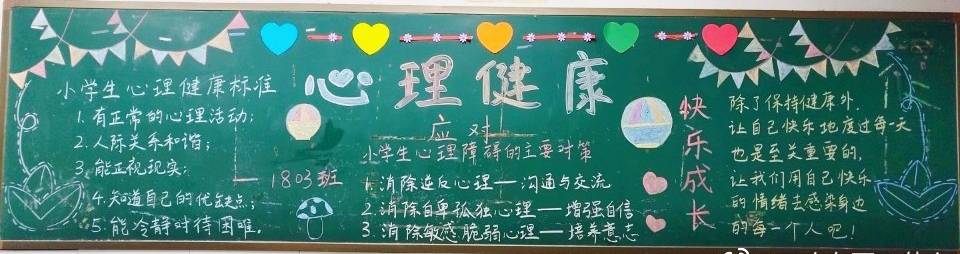 心理健康
小学生心理健康标准
1.有正常的心理活动;
2.人际关系和谐;
3.能正视现实;
4.知道自己的优缺点;
5.能冷静对待困难。
1803班
应对
小学生心理障碍的主要对策
1.消除逆反心理——沟通与交流
2.消除自卑孤独心理——增强自信
3.消除敏感脆弱心理——培养意志
快乐成长
除了保持健康外,
让自己快乐地度过每一天
也是至关重要的,
让我们用自己快乐
的情绪去感染身边
的每一个人吧!